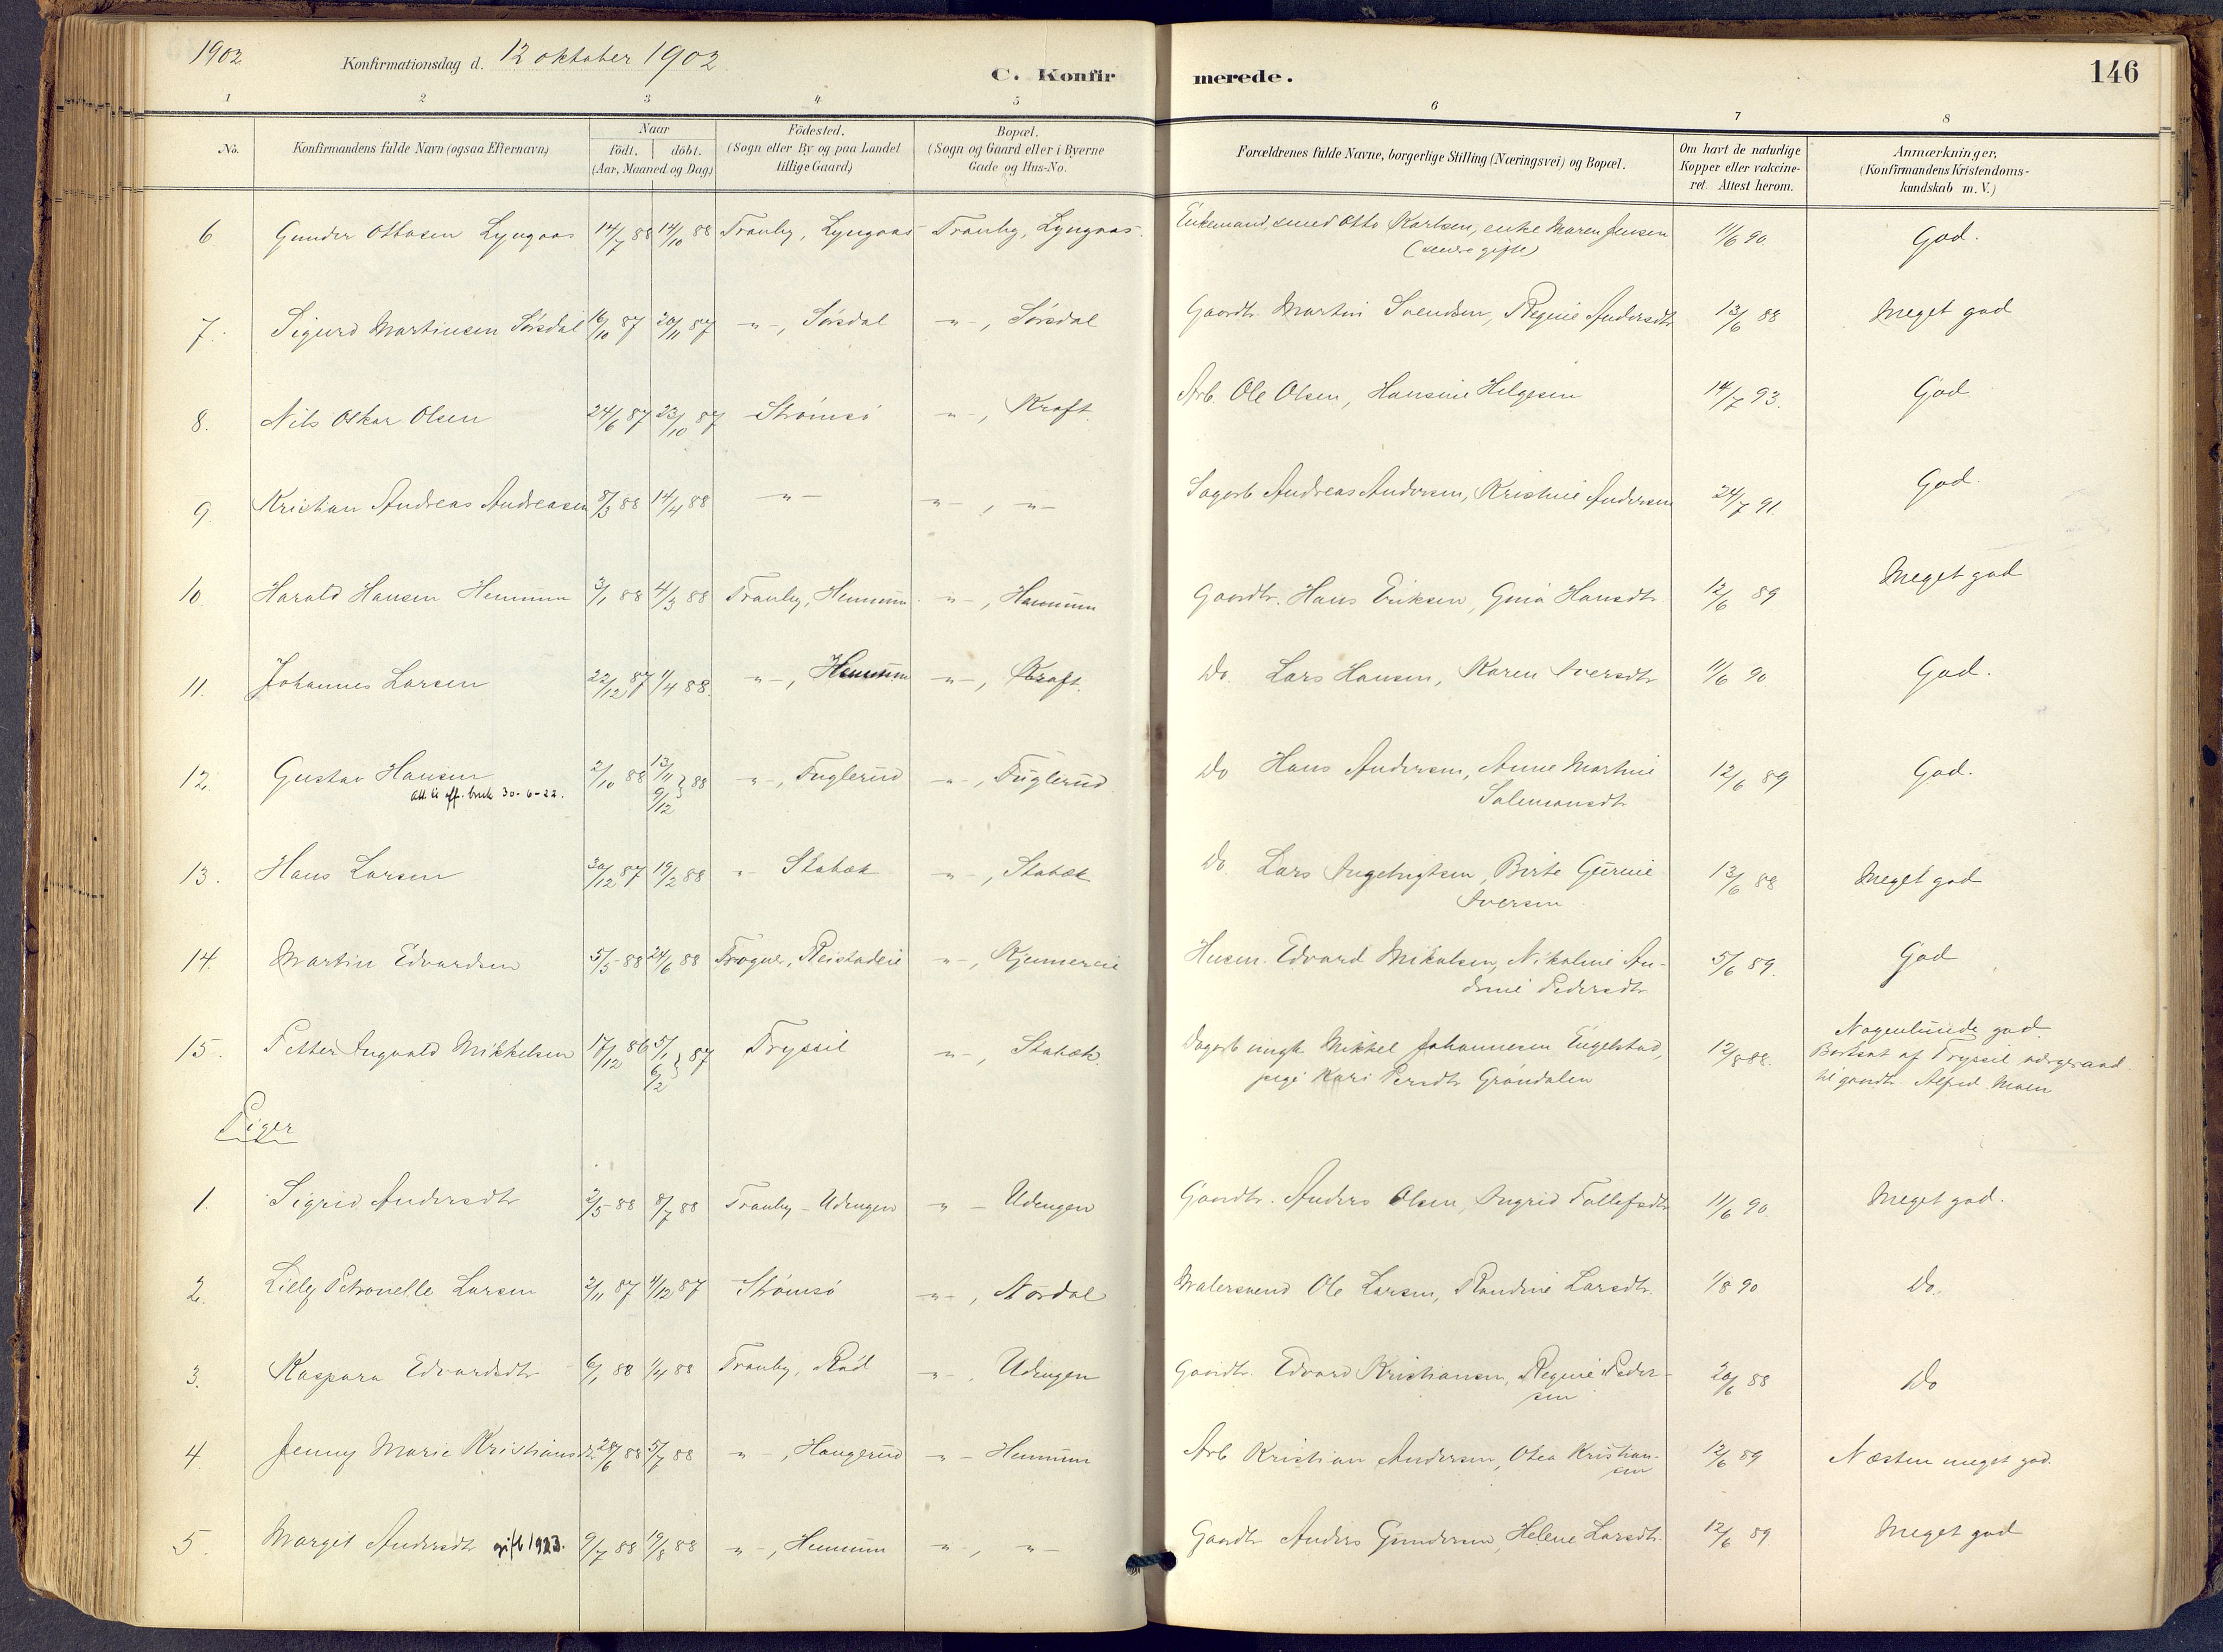 1902
Konfirmationsdag d. 12 oktober 1902.
C. Konfirmerede.
146
1 2 3 4 5 6 7 8
No.
Konfirmandens fulde Navn (ogsaa Efternavn)
Naar
Födt. döbt.
(Aar, Maaned og Dag)
Födested.
(Sogn eller By og paa Landet
tillige Gaard)
Bopæl.
(Sogn og Gaard eller i Byerne
Gade og Hus-No.
Forældrenes fulde Navne, borgerlige Stilling (Næringsvei) og Bopæl.
Om havt de naturlige
Kopper eller vakcine-
ret. Attest herom.
Anmærkninger.
(Konfirmandens Kristendoms-
kundskab m. V.)
6 Gunder Ottosen Lyngaas 14/7 88 14/10 88 Tranby, Lyngaas Tranby, Lyngaas. Enkemand, smed Otto Karlsen, enke Maren Jensen 11/6 90. God.
7. Sigurd Martinsen Sørsdal 16/10 87 20/11 87 -"-, Sørsdal -"-, Sørsdal Gaardbr. Martin Svendsen, Regine Andersdtr 13/6 88 Meget god
8. Nils Oskar Olsen 24/6 87 23/10 87 Strömsö -"-, Kraft Arb. Ole Olsen, Hansine Helgesen 14/7 93. God
9 Kristian Andreas Andreasen 8/3 88 14/4 88 -"- -"-, -"- Sagarb Andreas Andersen, Kristine Andersen 24/7 91. God.
10 Harald Hansen Hennum 3/1 88 4/3 88 Tranby, Hennum -"-, Hennum Gaardbr. Hans Eriksen, Gina Hansdtr 12/6 89 Meget god
11. Johannes Larsen 22/12 87 1/4 88. -"-, Hennum -"-, Kraft. Do. Lars Hansen, Karen Iversdtr 11/6 90 God.
12. Gustav Hansen 2/10 88 13/11 } 88 -"-, Fuglerud -"-, Fuglerud. Do Hans Andersen, Anne Martine 12/6 89 God.
att. til off. bruk 30-6-22. 9/12 Salomonsdtr
13. Hans Larsen 30/12 87 19/2 88 -"- Stabæk -"-, Stabæk Do. Lars Ingebrigtsen, Birte Gurine 13/6 88 Meget god
Iversen
14. Martin Edvardsen 5/5 88 24/6 88 Frogner, Reistadeie -"-, Kjennereie Husm. Edvard Mikalsen, Nikoline An- 5/6 89. God
drine Pedersdtr
15. Petter Ingvald Mikkelsen 17/12 86 5/1 } 87 Trysil -"-, Stabæk. Dagarb ungk. Mikkel Johannesen Engelstad, 12/8 88. Nogenlunde god.
6/2 pige Kari Persdtr Gröndalen Bortsat af Trysil værgeraad
til gaardbr. Alfred Moen
Piger
1. Sigrid Andersdtr 2/5 88 8/7 88 Tranby - Udengen " - Udengen Gaardbr. Anders Olsen, Ingrid Tollefsdtr 11/6 90. Meget god.
2. Lilly Petronelle Larsen 2/11 87 4/12 87 Strömsö -"-, Nordal Malersvend Ole Larsen, Randine Larsdtr. 1/8 90 Do.
3. Kaspara Edvardsdtr 6/1 88 1/4 88 Tranby, Röd -"-, Udengen Gaardbr. Edvard Kristiansen, Regine Peder- 20/6 88 Do
sen
4 Jenny Marie Kristiansdtr 28/6 88 5/7 88 -"-, Haugerud " - Hennum Arb Kristian Andersen, Otea Kristian- 12/6 89 Næsten meget god.
sen
5. Margit Andersdtr gift 1923. 9/7 88 19/8 88 -"-, Hennum -"-, -"- Gaardbr Anders Gundersen, Helene Larsdtr. 12/6 89 Meget god